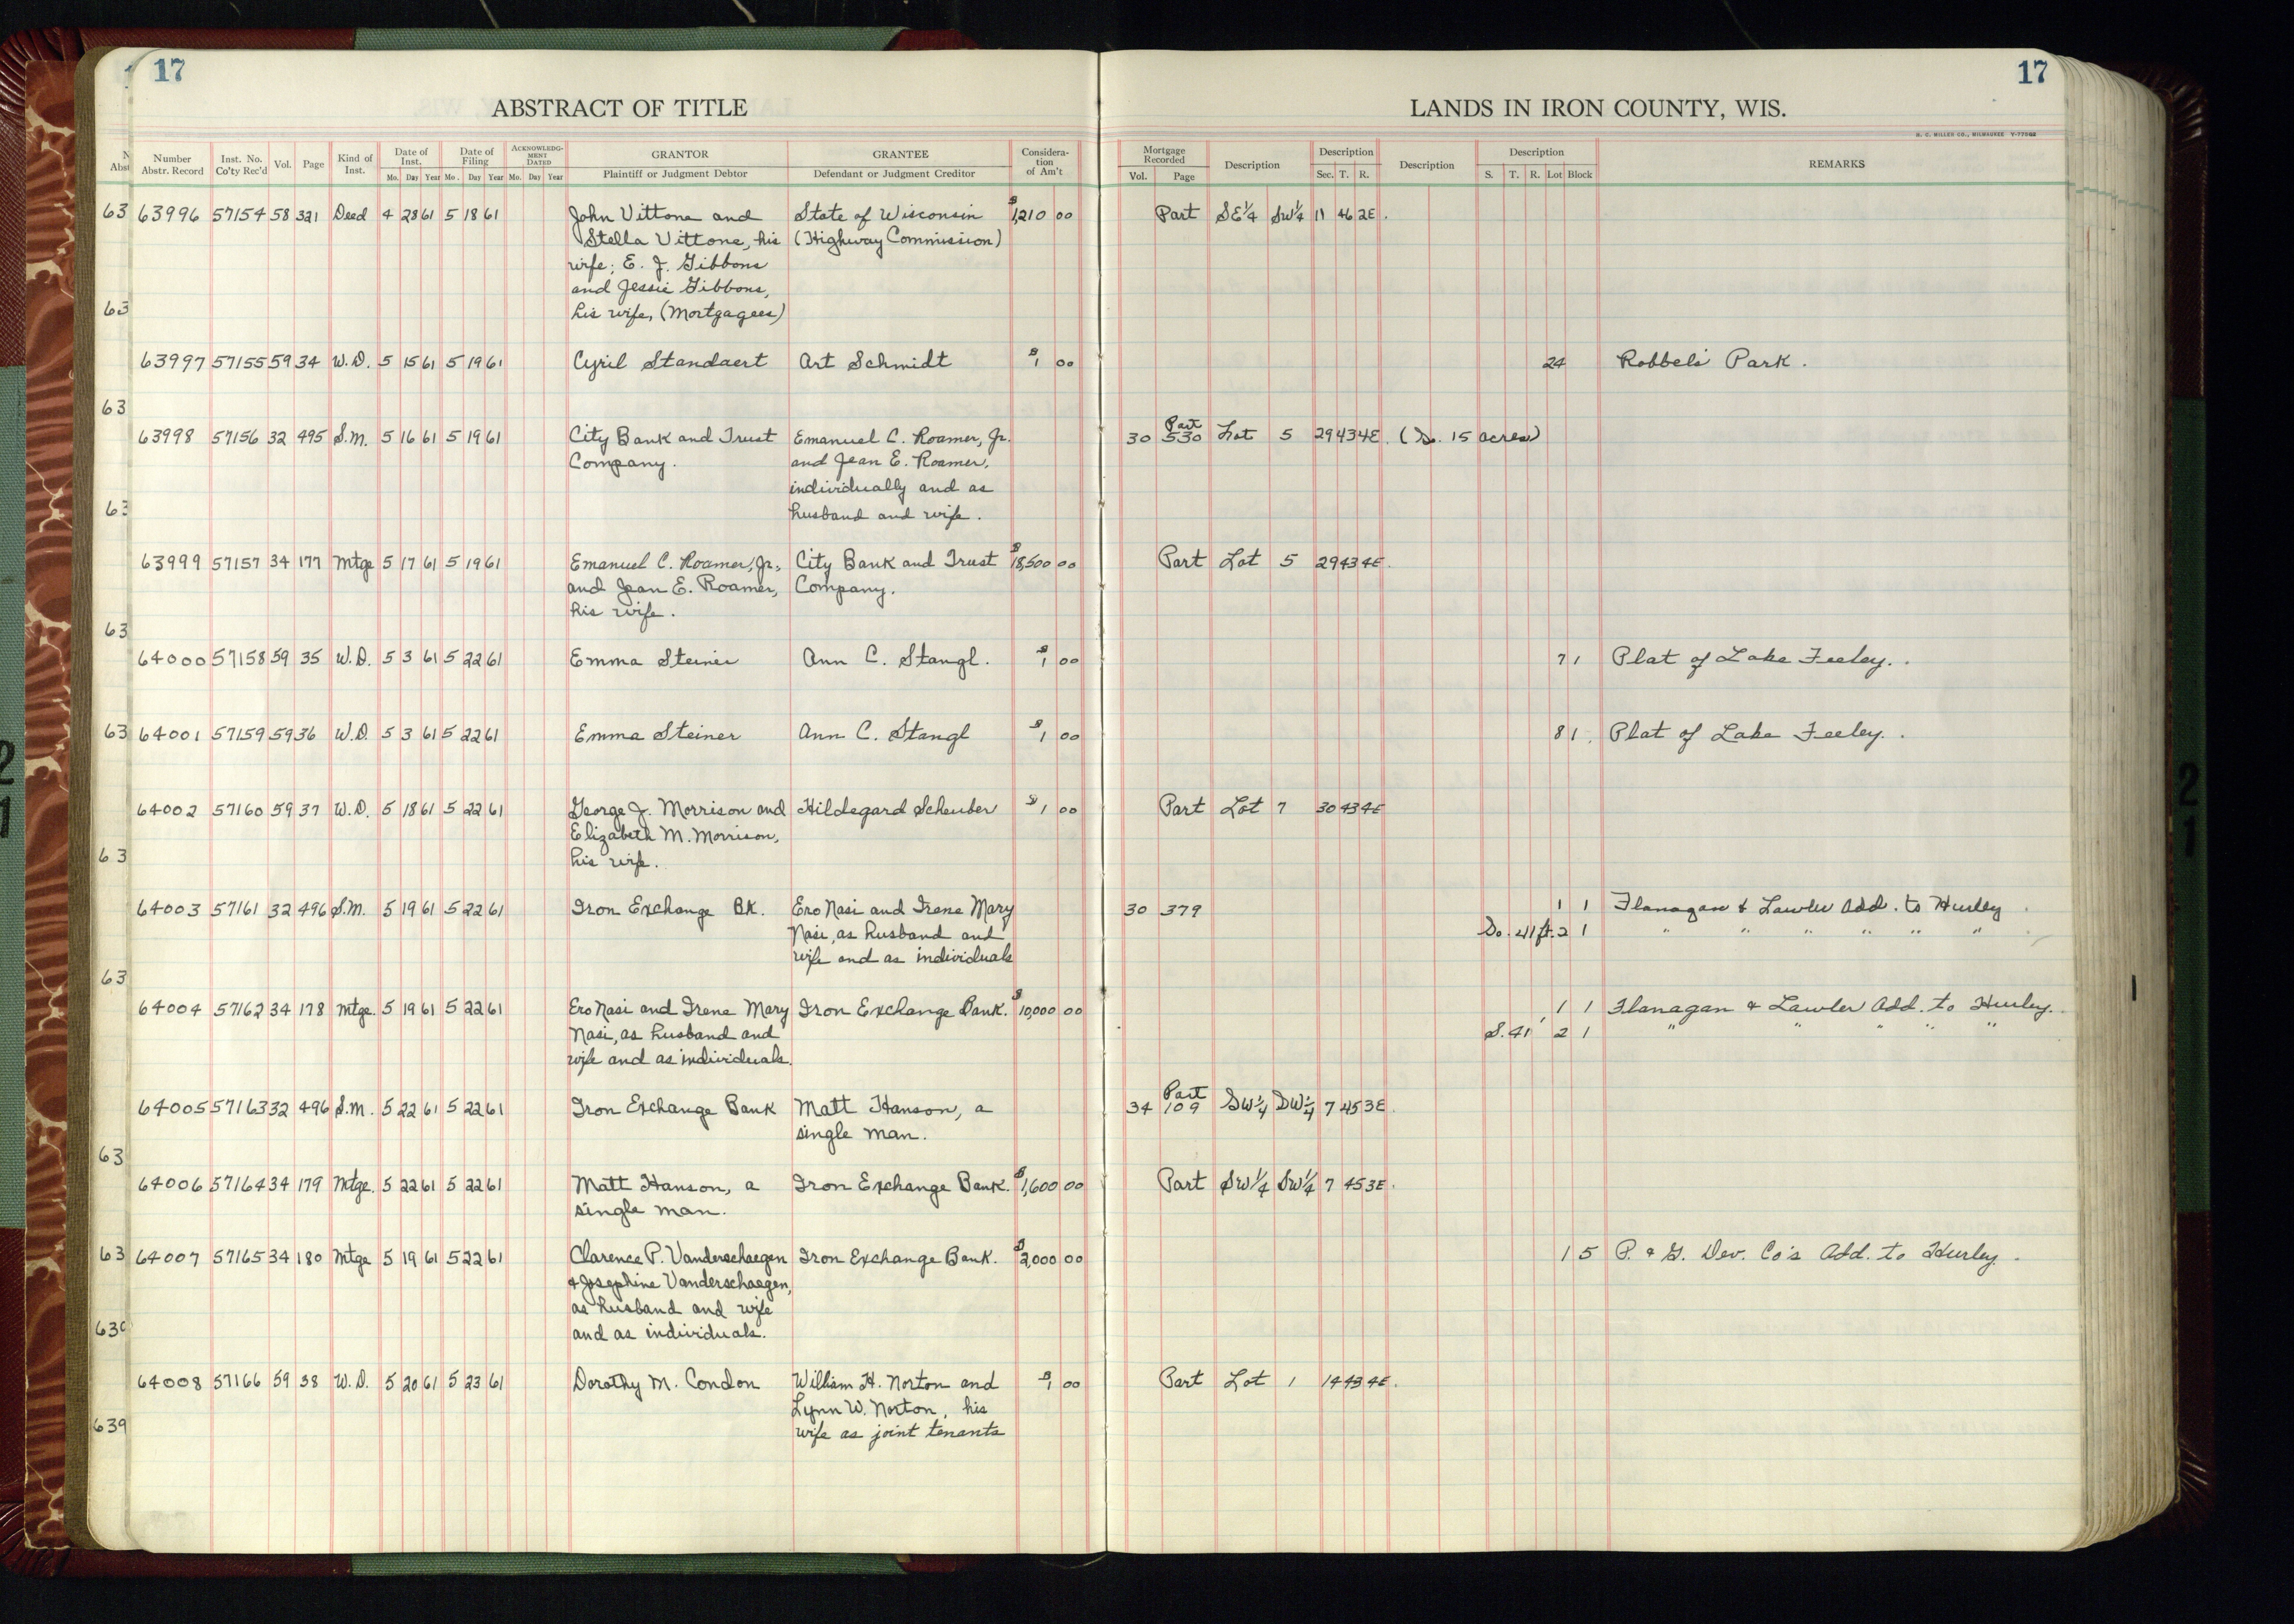 17
17
ABSTRACT OF TITLE
LANDS IN IRON COUNTY, WIS.
H. C. MILLER CO., MILWAUKEE
Number Abstr. Record | Inst. No. Co'ty Rec'd | Vol. | Page | Kind of Inst. | Date of Inst. Mo. Day Year | Date of Filing Mo. Day Year | ACKNOWLEDGMENT DATED Mo. Day Year | GRANTOR Plaintiff or Judgment Debtor | GRANTEE Defendant or Judgment Creditor | Consideration of Am't | Mortgage Recorded Vol. Page | Description | Description Sec. T. R. | Description | Description S. T. R. Lot Block | REMARKS
63 63996 57154 58 321 Deed 4 28 61 5 18 61 John Vittone and State of Wisconsin $1,210 00 Part SE¼ SW¼ 11 46 2E.
Stella Vittone, his (Highway Commission)
wife; E. J. Gibbons
and Jessie Gibbons,
63 his wife, (Mortgagees)
63997 57155 59 34 W.D. 5 15 61 5 19 61 Cyril Standaert Art Schmidt $1 00 24 Robbels' Park.
63
63998 57156 32 495 S.M. 5 16 61 5 19 61 City Bank and Trust Emanuel C. Roamer, Jr. 30 Part 530 Lot 5 29 43 4E. (So. 15 acres)
Company. and Jean E. Roamer,
individually and as
63 husband and wife.
63999 57157 34 177 Mtge 5 17 61 5 19 61 Emanuel C. Roamer, Jr., City Bank and Trust $18,500 00 Part Lot 5 29 43 4E.
and Jean E. Roamer, Company.
his wife.
63
64000 57158 59 35 W.D. 5 3 61 5 22 61 Emma Steiner Ann C. Stangl. $1 00 7 1 Plat of Lake Feeley.
63 64001 57159 59 36 W.D. 5 3 61 5 22 61 Emma Steiner Ann C. Stangl $1 00 8 1. Plat of Lake Feeley.
64002 57160 59 37 W.D. 5 18 61 5 22 61 George J. Morrison and Hildegard Scheuber $1 00 Part Lot 7 30 43 4E
Elizabeth M. Morrison,
63 his wife.
64003 57161 32 496 S.M. 5 19 61 5 22 61 Iron Exchange Bk. Ero Nasi and Irene Mary 30 379 1 1 Flanagan & Lawler Add. to Hurley
Nasi, as husband and So. 41 ft. 2 1 " " " " " "
wife and as individuals
63
64004 57162 34 178 Mtge. 5 19 61 5 22 61 Ero Nasi and Irene Mary Iron Exchange Bank. $10,000 00 1 1 Flanagan & Lawler Add. to Hurley.
Nasi, as husband and S. 41' 2 1 " " " " "
wife and as individuals.
64005 57163 32 496 S.M. 5 22 61 5 22 61 Iron Exchange Bank Matt Hanson, a 34 Part 109 SW¼ SW¼ 7 45 3E.
single man.
63
64006 57164 34 179 Mtge. 5 22 61 5 22 61 Matt Hanson, a Iron Exchange Bank. $1,600 00 Part SW¼ SW¼ 7 45 3E.
single man.
63 64007 57165 34 180 Mtge 5 19 61 5 22 61 Clarence P. Vanderschaegen Iron Exchange Bank. $2,000 00 1 5 P. & G. Dev. Co's Add. to Hurley.
& Josephine Vanderschaegen,
as husband and wife
639 and as individuals.
64008 57166 59 38 W.D. 5 20 61 5 23 61 Dorothy M. Condon William H. Norton and $1 00 Part Lot 1 14 43 4E.
Lynn W. Norton, his
639 wife as joint tenants